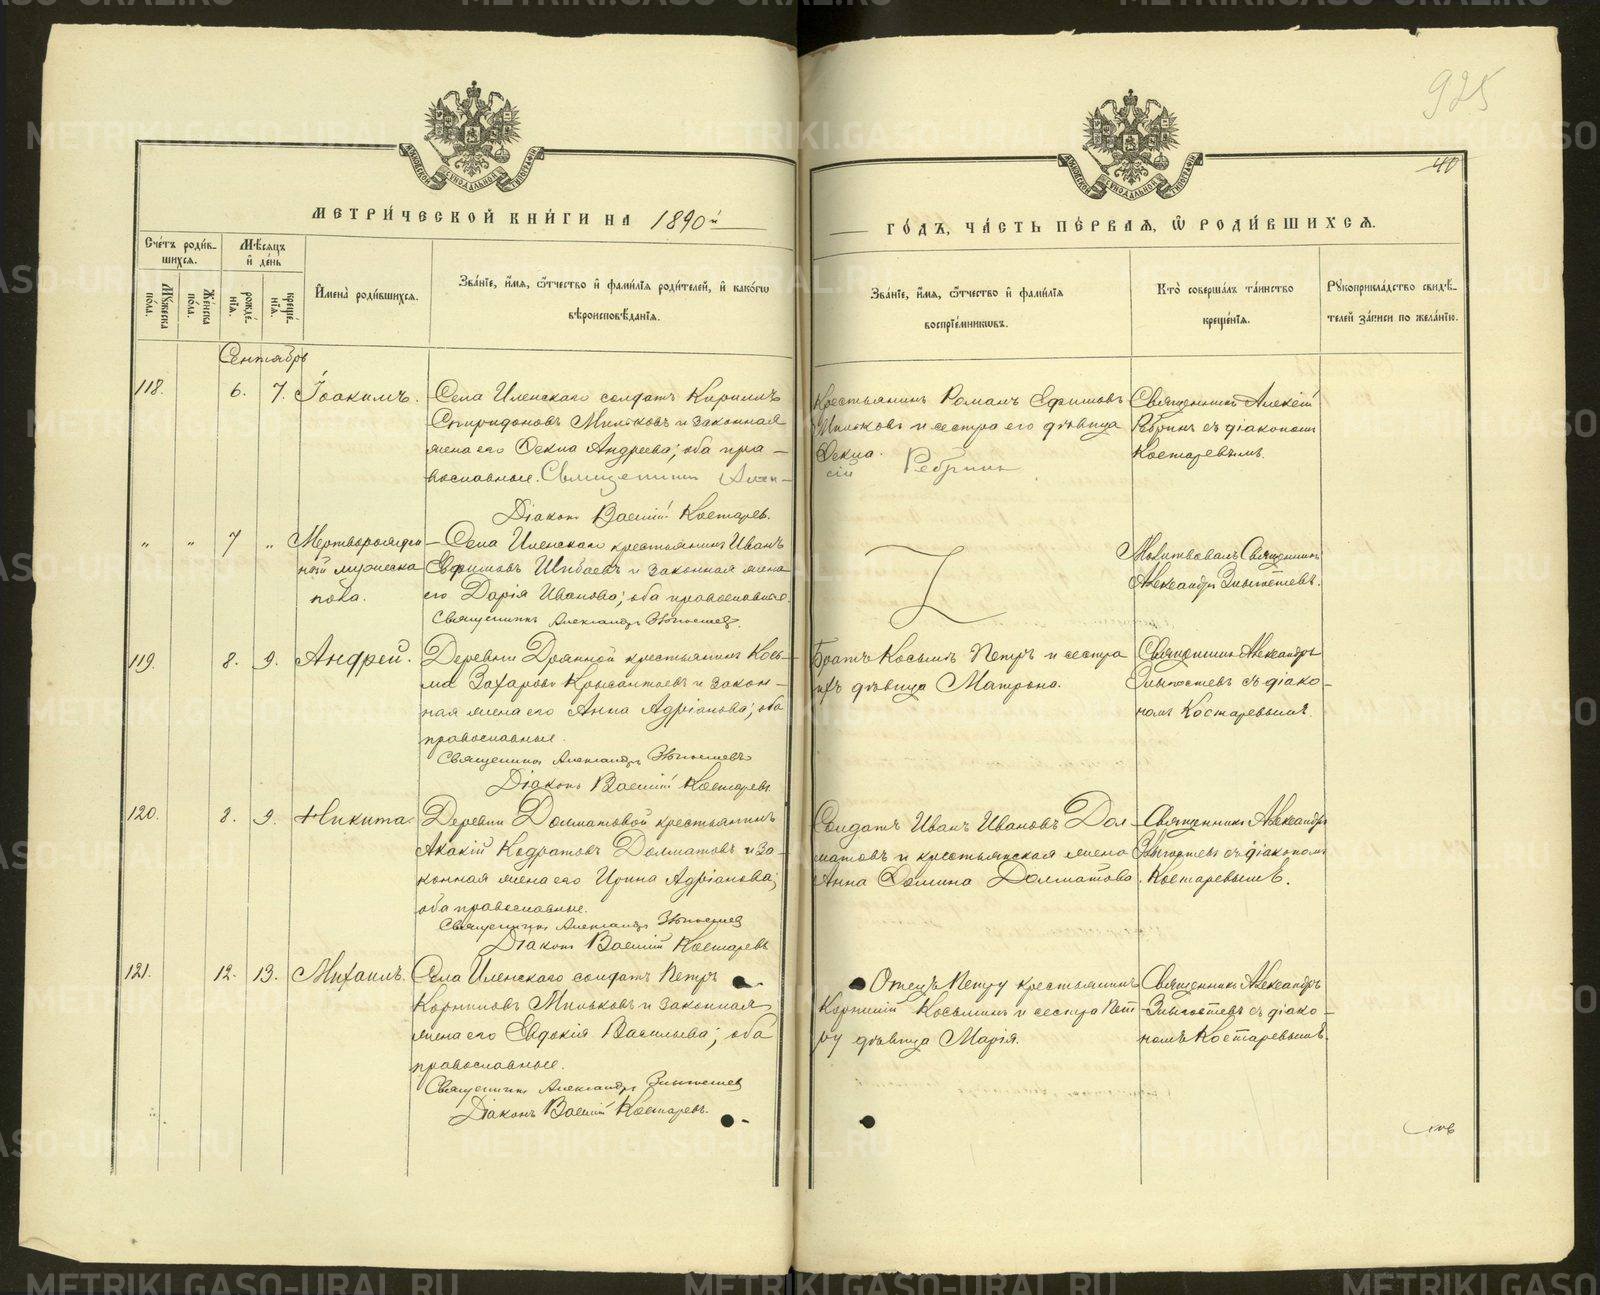 925
40
МЕТРИЧЕСКОЙ КНИГИ НА 1890й
ГОДЪ, ЧАСТЬ ПЕРВАЯ, Ѿ РОДИВШИХСЯ.
Счетъ родив-
шихся.
Мужеска пола.
Женска пола.
Мѣсяцъ
и день
рожде-
нія.
креще-
нія.
Имена родившихся.
Званіе, имя, ѿтчество и фамилія родителей, и какогѡ
вѣроисповѣданія.
Званіе, имя, ѿтчество и фамилія
воспріемниковъ.
Кто совершалъ таинство
крещенія.
Рукоприкладство свидѣ-
телей записи по желанію.
Сентябрь
118. 6. 7. Іоакимъ.
Села Иленскаго солдатъ Кириллъ
Спиридоновъ Мильковъ и законная
жена его Андреева; оба пра-
вославные. Священникъ Алек-
Діаконъ Василій Костаревъ.
Крестьянинъ Романъ Ефимовъ
Мильковъ и сестра его дѣвица
сій Ребринъ
Священникъ Алексій
Ребринъ съ діакономъ
Костаревымъ.
" " 7 " Мертворожден
ный мужеска
пола.
Села Иленскаго крестьянинъ Иванъ
Ефимовъ и законная жена
его Дарія Иванова; оба православные.
Священникъ Александръ
Молитвовалъ Священникъ
Александръ
119. 8. 9. Андрей.
Деревни крестьянинъ Кось-
ма Захаровъ и закон-
ная жена его Анна Адріанова; оба
православные.
Священникъ Александръ
Діаконъ Василій Костаревъ
Братъ Косьмы Петръ и сестра
ихъ дѣвица Матрона.
Священникъ Александръ
съ діако-
номъ Костаревымъ.
120. 8. 9. Никита.
Деревни Долматовой крестьянинъ
Акакій Кодратовъ Долматовъ и за-
конная жена его Ирина Адріанова;
оба православные.
Священникъ Александръ
Діаконъ Василій Костаревъ
Солдатъ Иванъ Ивановъ Дол-
матовъ и крестьянская жена
Анна Долматова.
Священникъ Александръ
съ діакономъ
Костаревымъ.
121. 12. 13. Михаилъ.
Села Иленскаго солдатъ Петръ
Корниловъ Мильковъ и законная
жена его Евдокія Васильева; оба
православные.
Священникъ Александръ
Діаконъ Василій Костаревъ.
Отецъ Петру крестьянинъ
Корнилій Косьминъ и сестра Пет
ру дѣвица Марія.
Священникъ Александръ
съ діако-
номъ Костаревымъ.
METRIKI.GASO-URAL.RU